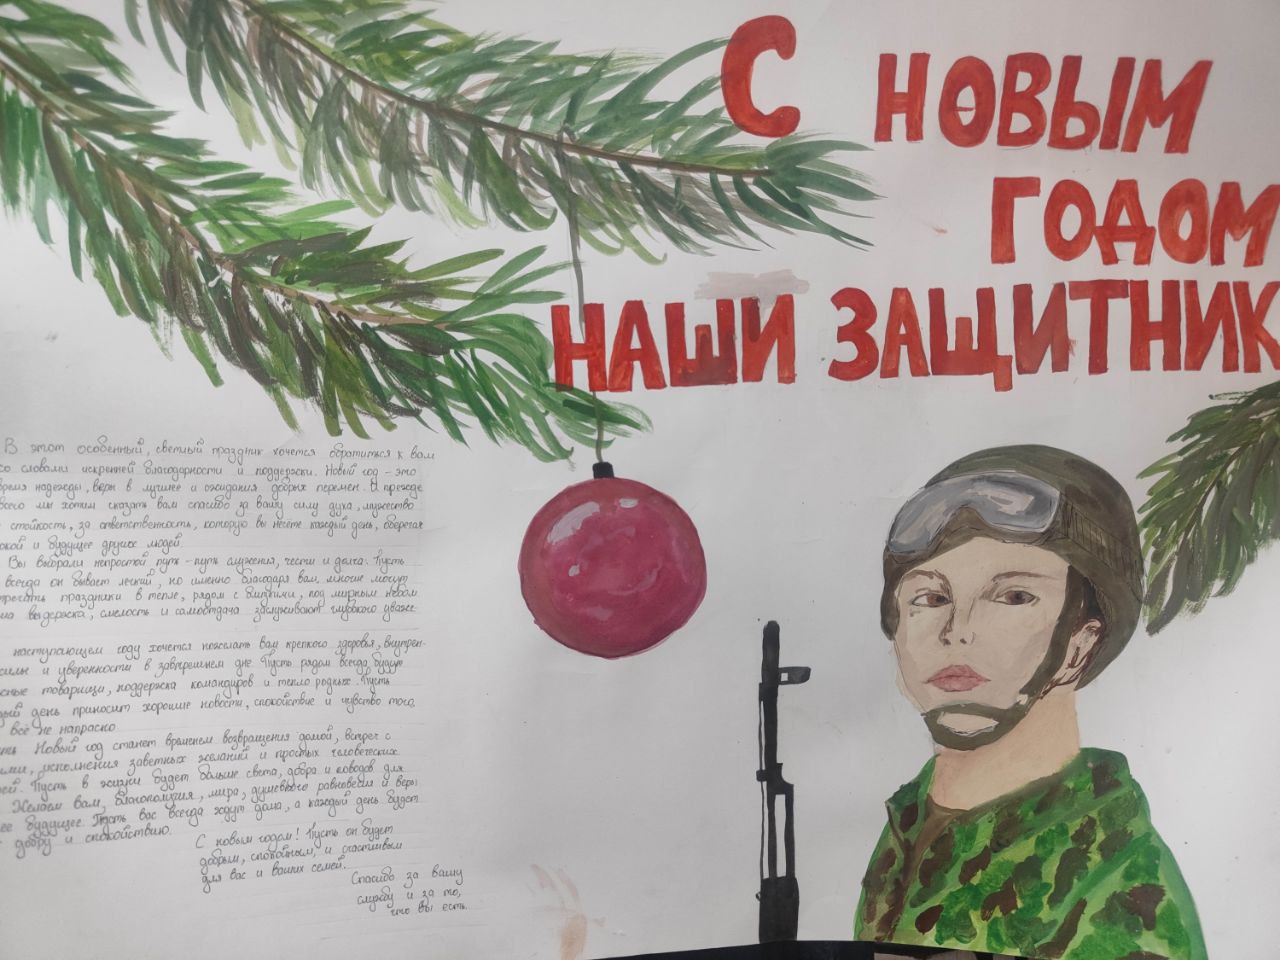 С НОВЫМ
ГОДОМ
НАШИ ЗАЩИТНИК
В этот особенный, светлый праздник хочется обратиться к вам
со словами искренней благодарности и поддержки. Новый год – это
время надежды, веры в лучшее и ожидания добрых перемен. И прежде
всего мы хотим сказать вам спасибо за вашу силу духа, мужество
стойкость, за ответственность, которую вы несёте каждый день, оберегая
покой и будущее других людей.
Вы выбрали непростой путь – путь служения, чести и долга. Пусть
всегда он бывает легкий, но именно благодаря вам, многие могут
встречать праздники в тепле, рядом с близкими, под мирным небом
выдержка, смелость и самоотдача заслуживают глубокого уваже-
наступающем году хочется пожелать вам крепкого здоровья, внутрен-
силы и уверенности в завтрешнем дне. Пусть рядом всегда будут
товарищи, поддержка командиров и тепло родных. Пусть
день приносит хорошие новости, спокойствие и чувство того,
всё не напрасно
Новый год станет временем возвращения домой, встреч с
исполнения заветных желаний и простых человеческих
Пусть в жизни будет больше света, добра и поводов для
Желаем вам, благополучия, мира, душевного равновесия и веры
будущее. Пусть вас всегда ждут дома, а каждый день будет
добру и спокойствию.
С новым годом! Пусть он будет
добрым, спокойным, и счастливым
для вас и ваших семей.
Спасибо за вашу
службу и за то,
что вы есть.